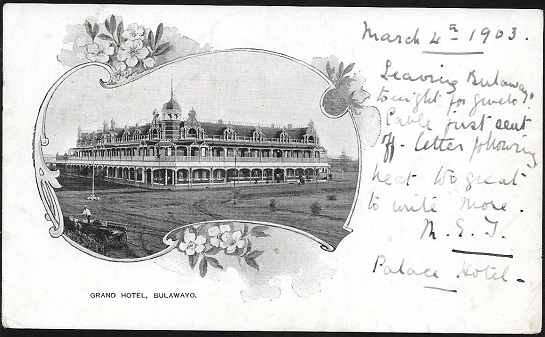 March 4th 1903.
Leaving Bulawayo
tonight for Gwelo.
Cable just sent
off - letter following
heat too great
to write more.
M. E. T.
Palace Hotel -
GRAND HOTEL, BULAWAYO.